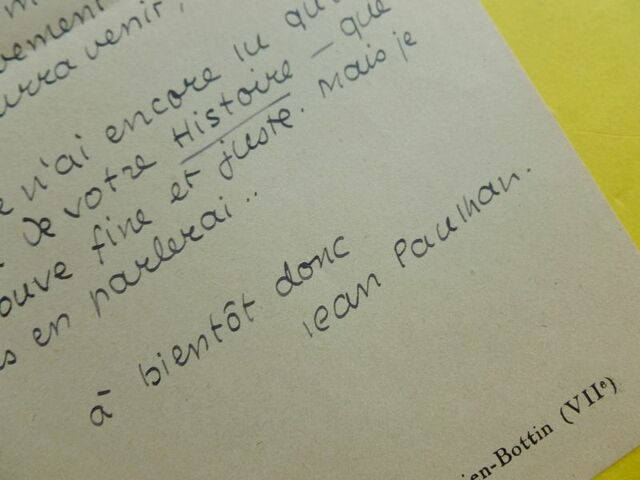 vement
rra venir,
n'ai encore lu qu'
de votre Histoire - que
ouve fine et juste. Mais je
s en parlerai..
à bientôt donc
Jean Paulhan.
ien-Bottin (VIIe)